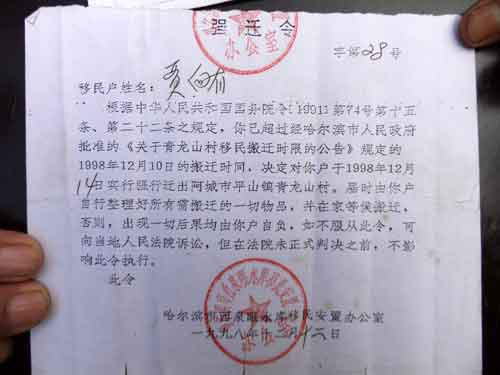 强 迁 令
字第28号
移民户姓名：贾
根据中华人民共和国国务院令〔1991〕第74号第十五
条、第二十二条之规定，你已超过经哈尔滨市人民政府
批准的《关于青龙山村移民搬迁时限的公告》规定的
1998年12月10日的搬迁时间，决定对你户于1998年12月
14日实行强行迁出阿城市平山镇青龙山村。届时由你户
自行整理好所有需搬迁的一切物品，并在家等候搬迁，
否则，出现一切后果均由你户自负，如不服从此令，可
向当地人民法院诉讼，但在法院未正式判决之前，不影
响此令执行。
此令
哈尔滨市西泉眼水库移民安置办公室
一九九八年十二月十二日
办公室